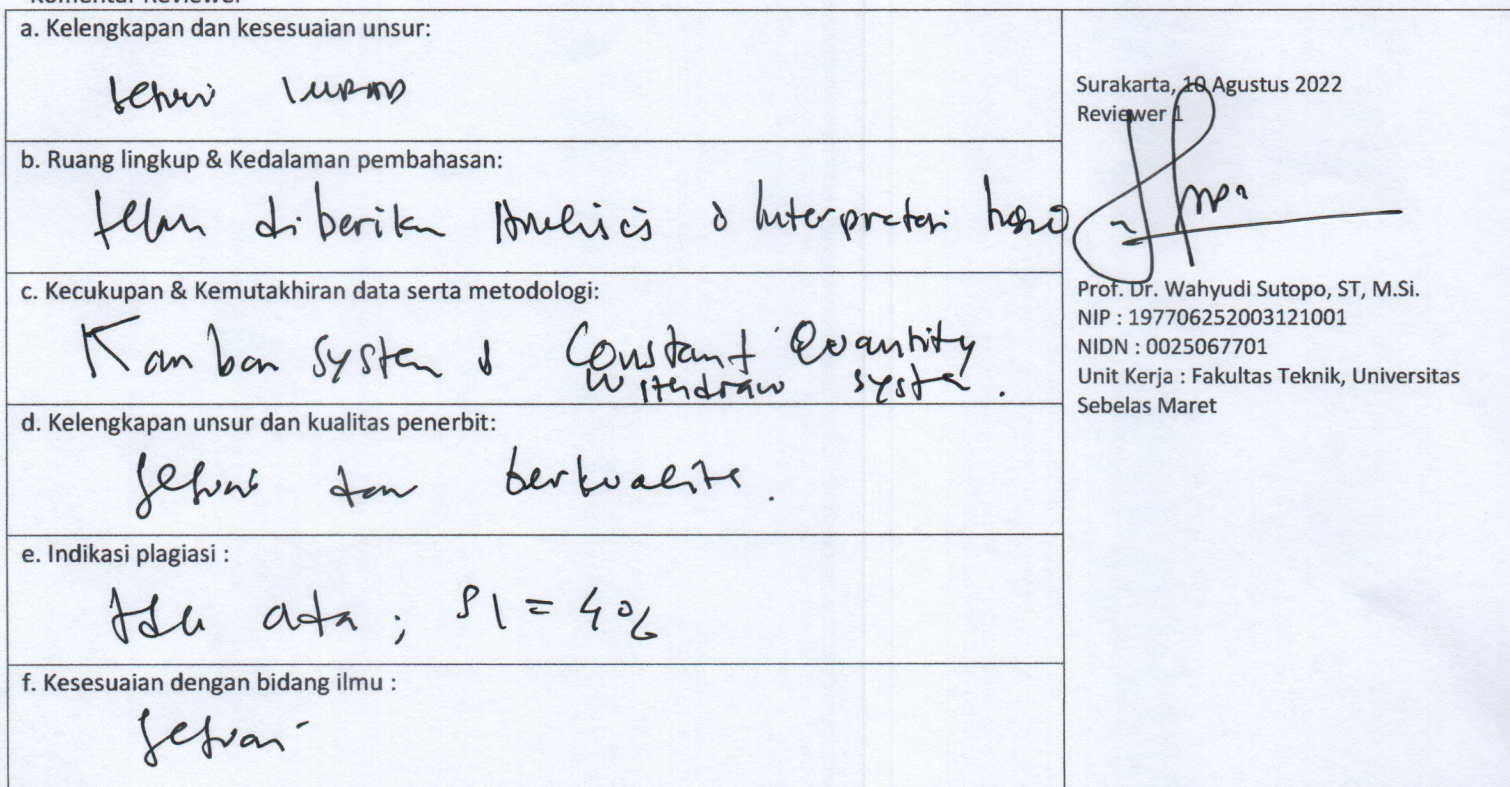 Komentar Reviewer
a. Kelengkapan dan kesesuaian unsur:
sesuai
b. Ruang lingkup & Kedalaman pembahasan:
telah diberikan Analisis & Interpretasi hasil
c. Kecukupan & Kemutakhiran data serta metodologi:
Kanban system & Constant Quantity
Withdraw system.
d. Kelengkapan unsur dan kualitas penerbit:
sesuai dan berkualitas.
e. Indikasi plagiasi :
tdk ada; SI = 4%
f. Kesesuaian dengan bidang ilmu :
sesuai
Surakarta, 10 Agustus 2022
Reviewer 1
Prof. Dr. Wahyudi Sutopo, ST, M.Si.
NIP : 197706252003121001
NIDN : 0025067701
Unit Kerja : Fakultas Teknik, Universitas
Sebelas Maret